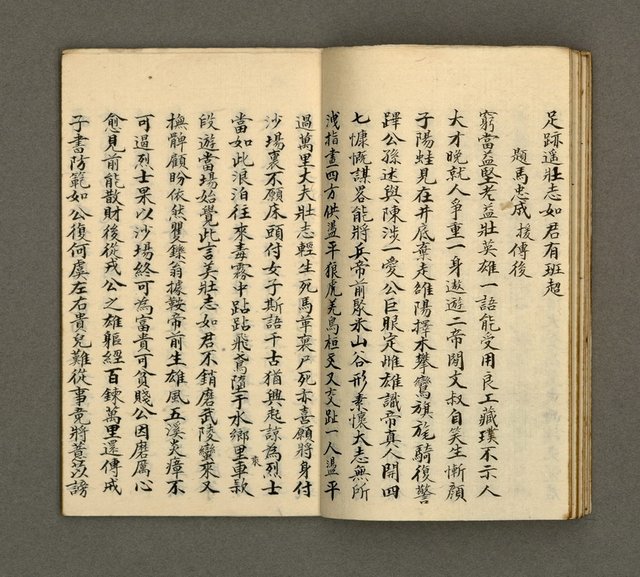 足跡遥壯志如君有班超
題馬忠成援傳後
窮當益堅老益壯英雄一語能受用良工藏璞不示人
大才晚就人爭重一身遨遊二帝間文叔自笑生慚顏
子陽蛙見在井底棄走雒陽擇木攀鸞旗旄騎復警
蹕公孫述與陳涉一愛公巨眼定雌雄識帝真人開四
七慷慨謀器能將兵帝前聚米山谷形素懷大志無所
洩指畫四方供盪平狼虎羌烏桓天又交趾一人盪平
過萬里大夫壯志輕生死馬革裹尸死亦喜願將身付
沙場裏不願床頭付女子斯語千古猶興起諒為烈士
當如此浪泊往來毒霧中跕跕飛鳶墮于水鄉里車款
哀
段遊當場始覺此言美壯志如君不銷磨武陵蠻來又
撫髀顧盼依然矍鑠翁據鞍帝前生雄風五溪炎瘴不
可逼烈士果以沙場終可為富貴可貧賤公因磨厲心
愈見前能散財後從戎公之雄軀經百鍊萬里還傳戒
子書防範如公復何虞左右貴兒難從事竟將薏苡謗